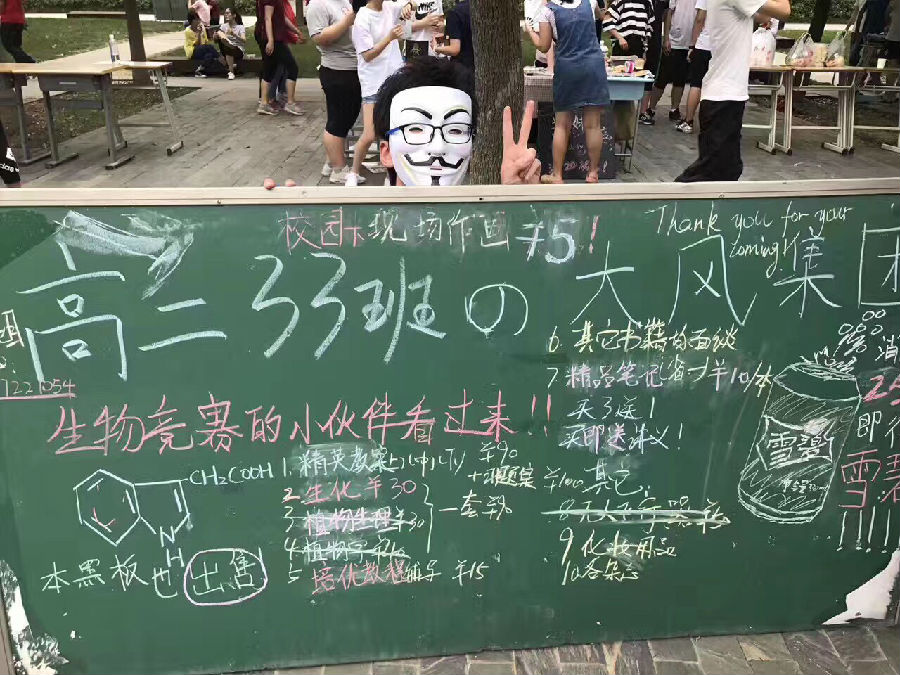 校园卡现场作画 ¥5!
Thank you for your
coming!!
高二33班の大风集团
722 054
生物竞赛的小伙伴看过来!!
CH₂COOH
N
H
1. 精英教案上(中)(下) ¥90
+习题集 ¥100
2. 生化 ¥30
3. 植物生理 ¥30
一套
4. 植物学
5 培优教程 ¥15
6. 其它书籍的面谈
7. 精品笔记 ¥10/本
买了送!
买即送
其它:
9 化妆用品
10 各杂志
雪碧
即
雪碧
!!!!
本黑板也出售